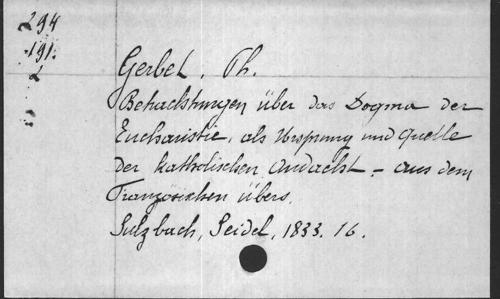 294
191.
2
Gerbet, Th.
Betrachtungen über das Dogma der
Eucharistie, als Ursprung und Quelle
der katholischen Andacht - aus dem
Französischen übers.
Sulzbach, Seidel, 1833. 16.